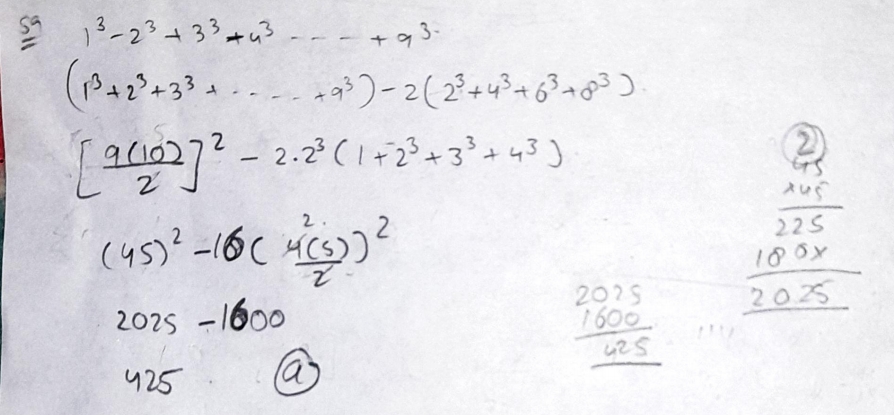 59
1³ - 2³ + 3³ + 4³ - - - - + 9³.
(1³ + 2³ + 3³ + - - - - - + 9³) - 2(2³ + 4³ + 6³ + 8³).
[9(10)/2]² - 2.2³ (1 + 2³ + 3³ + 4³)
(45)² - 16( 4(5)/2 )² 2.
2025 - 1600
425 (a)
(2)
45
x45
225
180x
2025
2025
1600
425